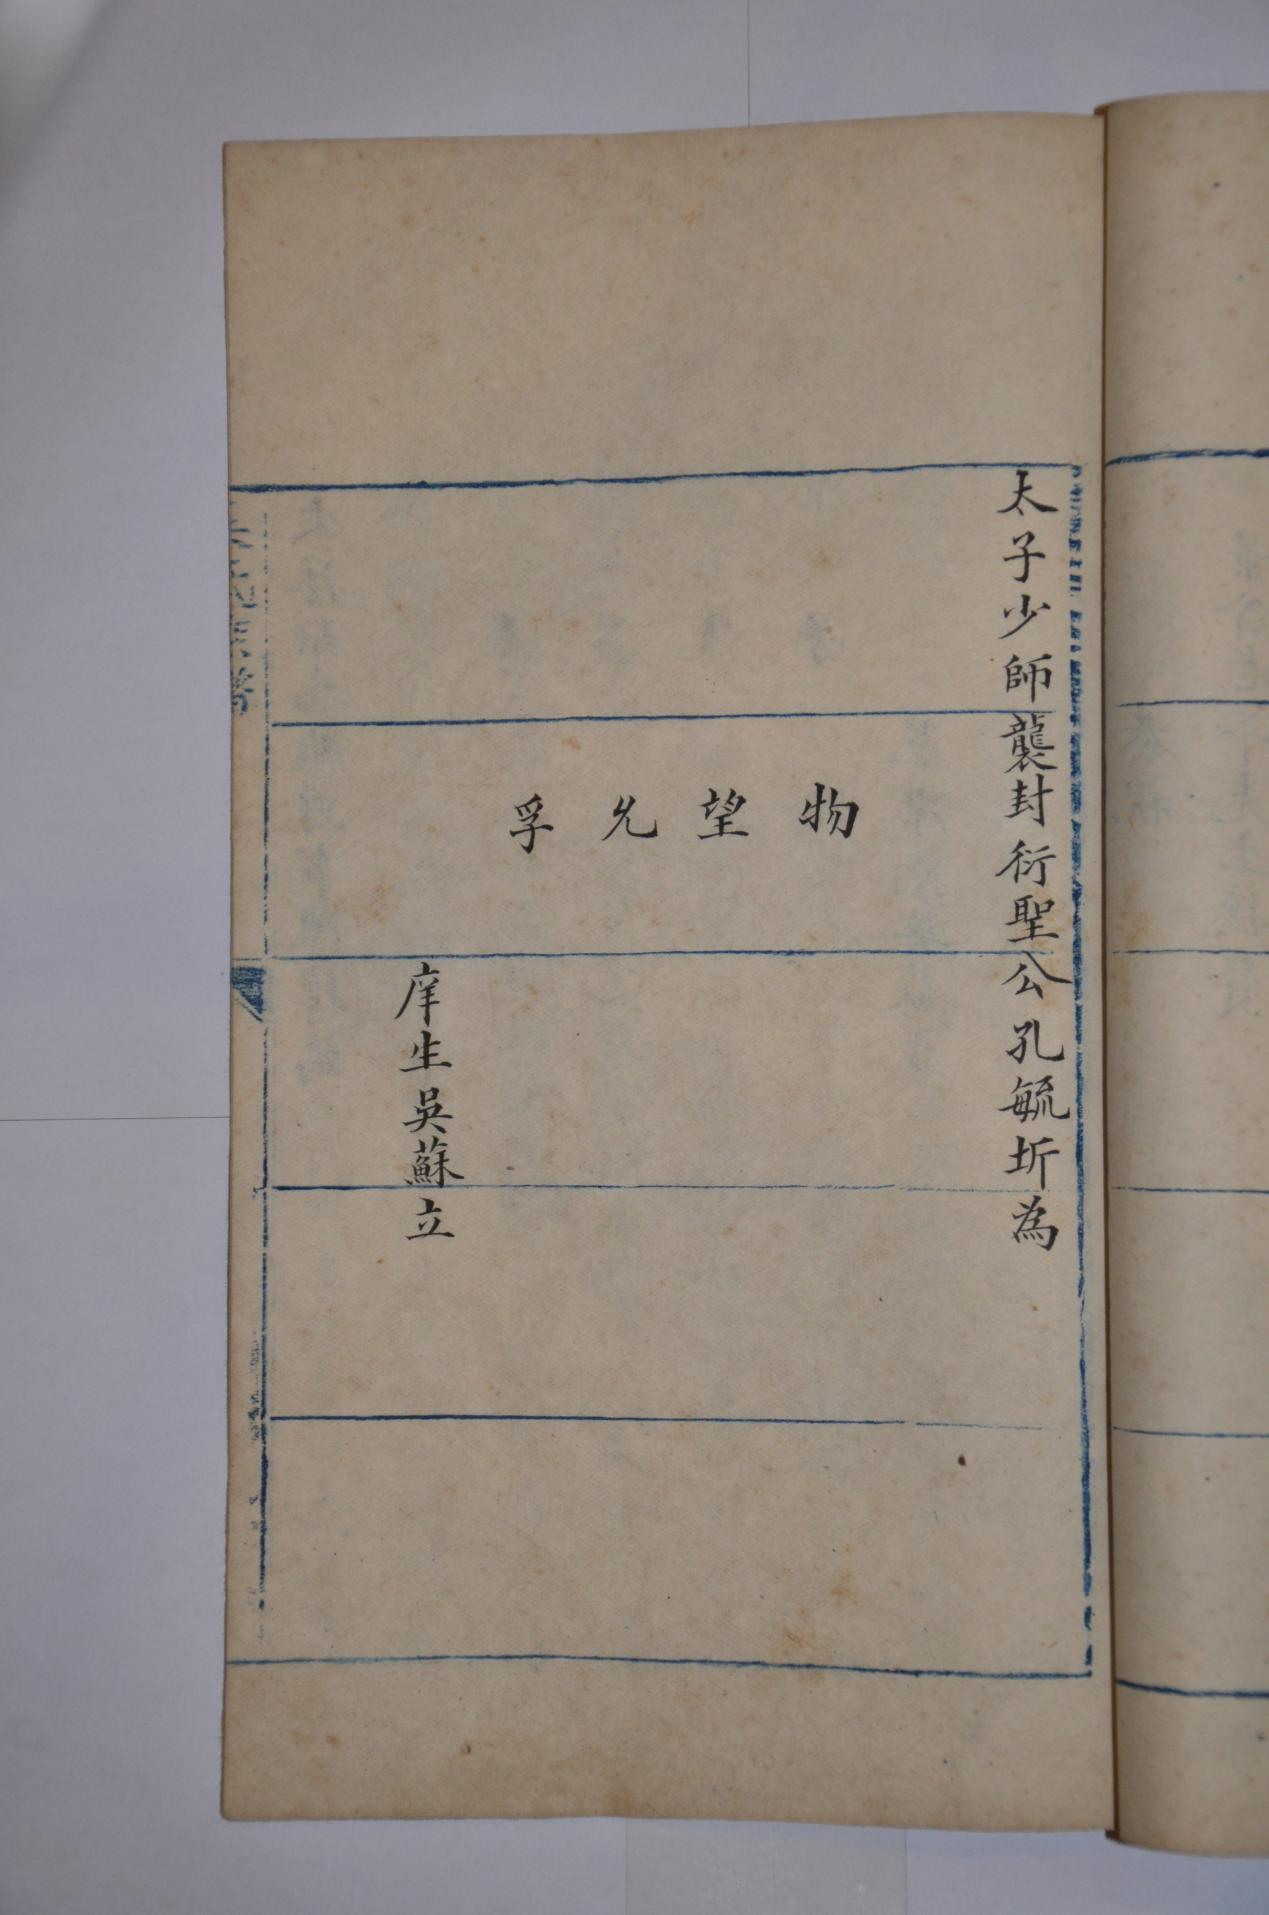 太子少師襲封衍聖公孔毓圻為
物望允孚
庠生吳蘇立